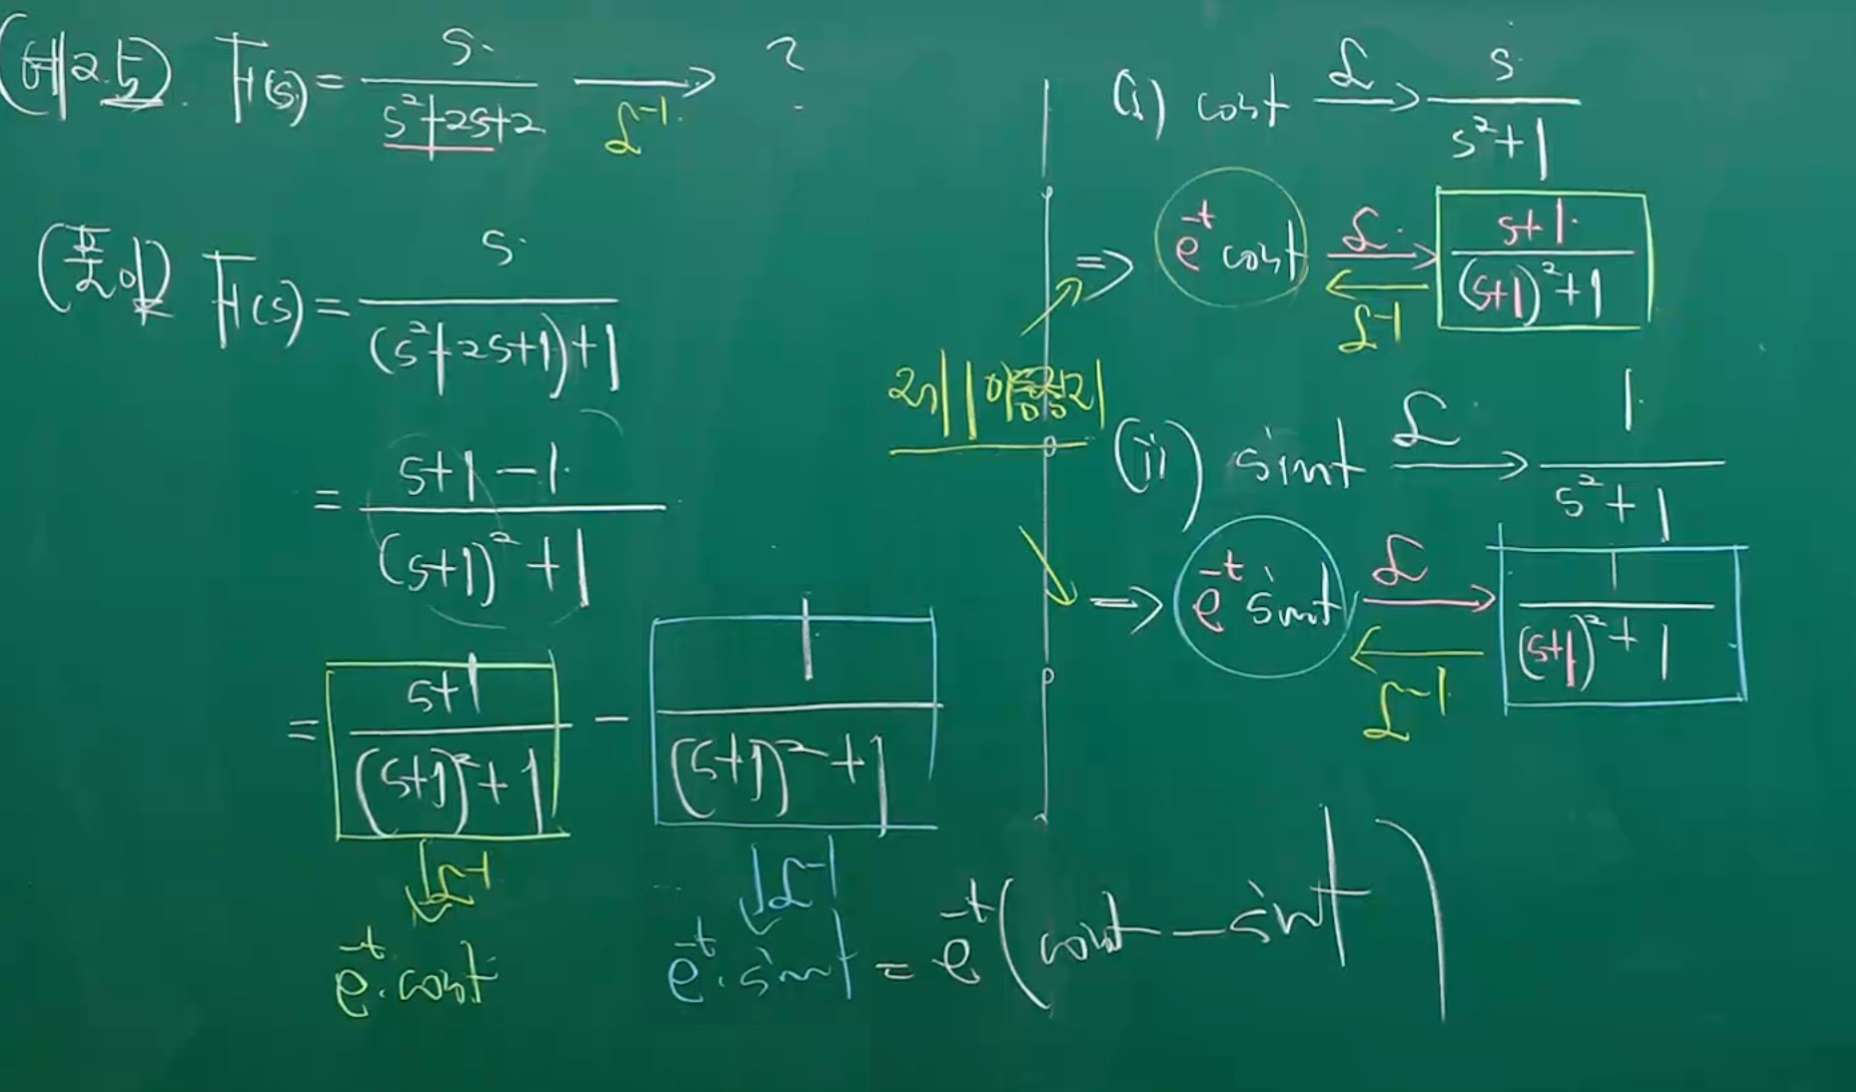 (예 2.5) F(s) = s / (s²+2s+2) → ℒ⁻¹ ?
(풀이) F(s) = s / ((s²+2s+1)+1)
= (s+1-1) / ((s+1)²+1)
= (s+1) / ((s+1)²+1) - 1 / ((s+1)²+1)
↓ℒ⁻¹ ↓ℒ⁻¹
e^-t · cost e^-t · sint = e^-t (cost - sint)
(i) cost → ℒ s / (s²+1)
⇒ e^-t cost → ℒ (s+1) / ((s+1)²+1)
← ℒ⁻¹
(ii) sint → ℒ 1 / (s²+1)
⇒ e^-t sint → ℒ 1 / ((s+1)²+1)
← ℒ⁻¹